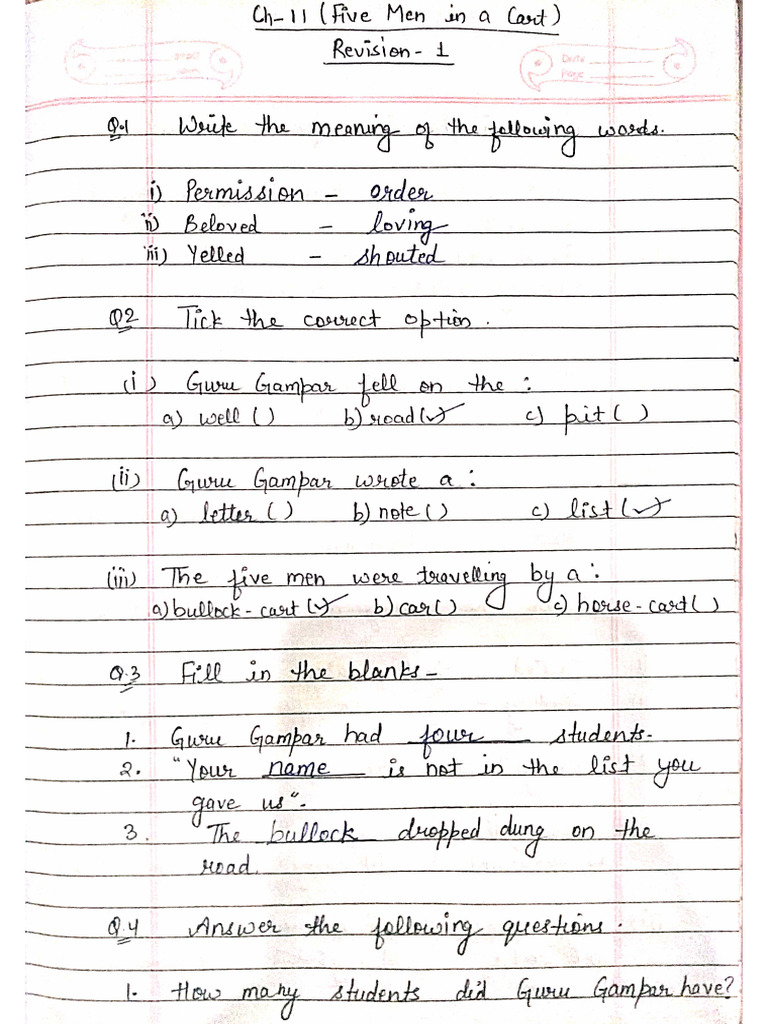 Ch-11 (Five Men in a Cart)
Revision-1
Q.1 Write the meaning of the following words.
i) Permission - order
ii) Beloved - loving
iii) Yelled - shouted
Q2 Tick the correct option.
(i) Guru Gampar fell on the :
a) well ( ) b) road (✓) c) pit ( )
(ii) Guru Gampar wrote a :
a) letter ( ) b) note ( ) c) list (✓)
(iii) The five men were travelling by a :
a) bullock-cart (✓) b) car ( ) c) horse-cart ( )
Q.3 Fill in the blanks-
1. Guru Gampar had four students.
2. "Your name is not in the list you
gave us".
3. The bullock dropped dung on the
road.
Q.4 Answer the following questions.
1. How many students did Guru Gampar have?